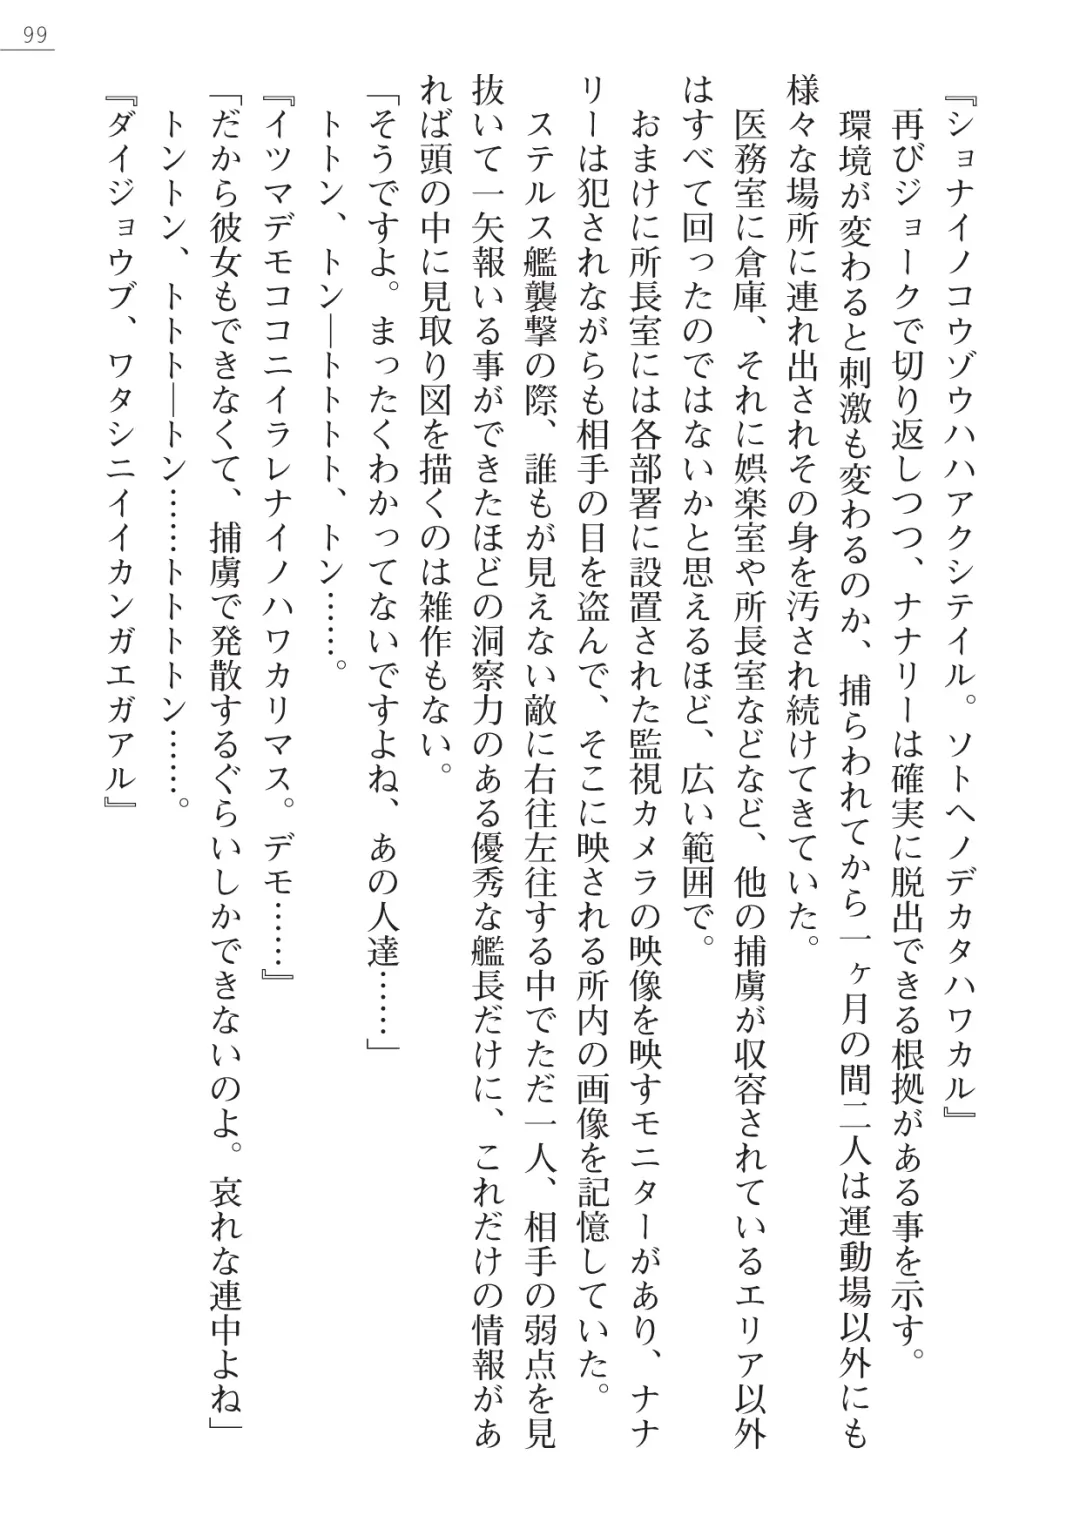 99
『ショナイノコウゾウハハアクシテイル。ソトヘノデカタハワカル』
再びジョークで切り返しつつ、ナナリーは確実に脱出できる根拠がある事を示す。
環境が変わると刺激も変わるのか、捕らわれてから一ヶ月の間二人は運動場以外にも
様々な場所に連れ出されその身を汚され続けてきていた。
医務室に倉庫、それに娯楽室や所長室などなど、他の捕虜が収容されているエリア以外
はすべて回ったのではないかと思えるほど、広い範囲で。
おまけに所長室には各部署に設置された監視カメラの映像を映すモニターがあり、ナナ
リーは犯されながらも相手の目を盗んで、そこに映される所内の画像を記憶していた。
ステルス艦襲撃の際、誰もが見えない敵に右往左往する中でただ一人、相手の弱点を見
抜いて一矢報いる事ができたほどの洞察力のある優秀な艦長だけに、これだけの情報があ
れば頭の中に見取り図を描くのは雑作もない。
「そうですよ。まったくわかってないですよね、あの人達……」
トトン、トン―トトトト、トン……。
『イツマデモココニイラレナイノハワカリマス。デモ……』
「だから彼女もできなくて、捕虜で発散するぐらいしかできないのよ。哀れな連中よね」
トントン、トトトト―トン……トトトトン……。
『ダイジョウブ、ワタシニイイカンガエガアル』